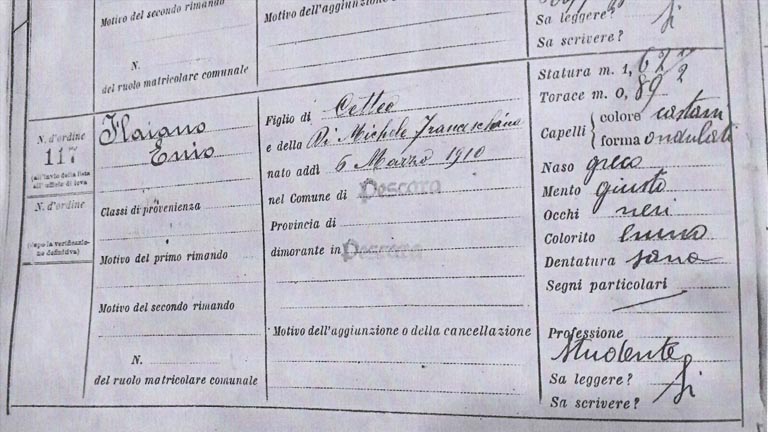 Motivo del secondo rimando
N.
del ruolo matricolare comunale
Motivo dell'aggiunzione
Sa leggere? Si
Sa scrivere?
N. d'ordine
117
(all'invio della lista
all'ufficio di leva
N. d'ordine
(dopo la verificazio-
ne definitiva)
Flaiano
Ennio
Classi di provenienza
Motivo del primo rimando
Motivo del secondo rimando
N.
del ruolo matricolare comunale
Figlio di Cetteo
e della Di Michele Francesca
nato addì 5 Marzo 1910
nel Comune di Pescara
Provincia di
dimorante in Pescara
Motivo dell'aggiunzione o della cancellazione
Statura m. 1,67
Torace m. 0,89
Capelli colore castani
forma ondulati
Naso greco
Mento giusto
Occhi neri
Colorito bruno
Dentatura sana
Segni particolari
Professione
Studente
Sa leggere? Si
Sa scrivere?